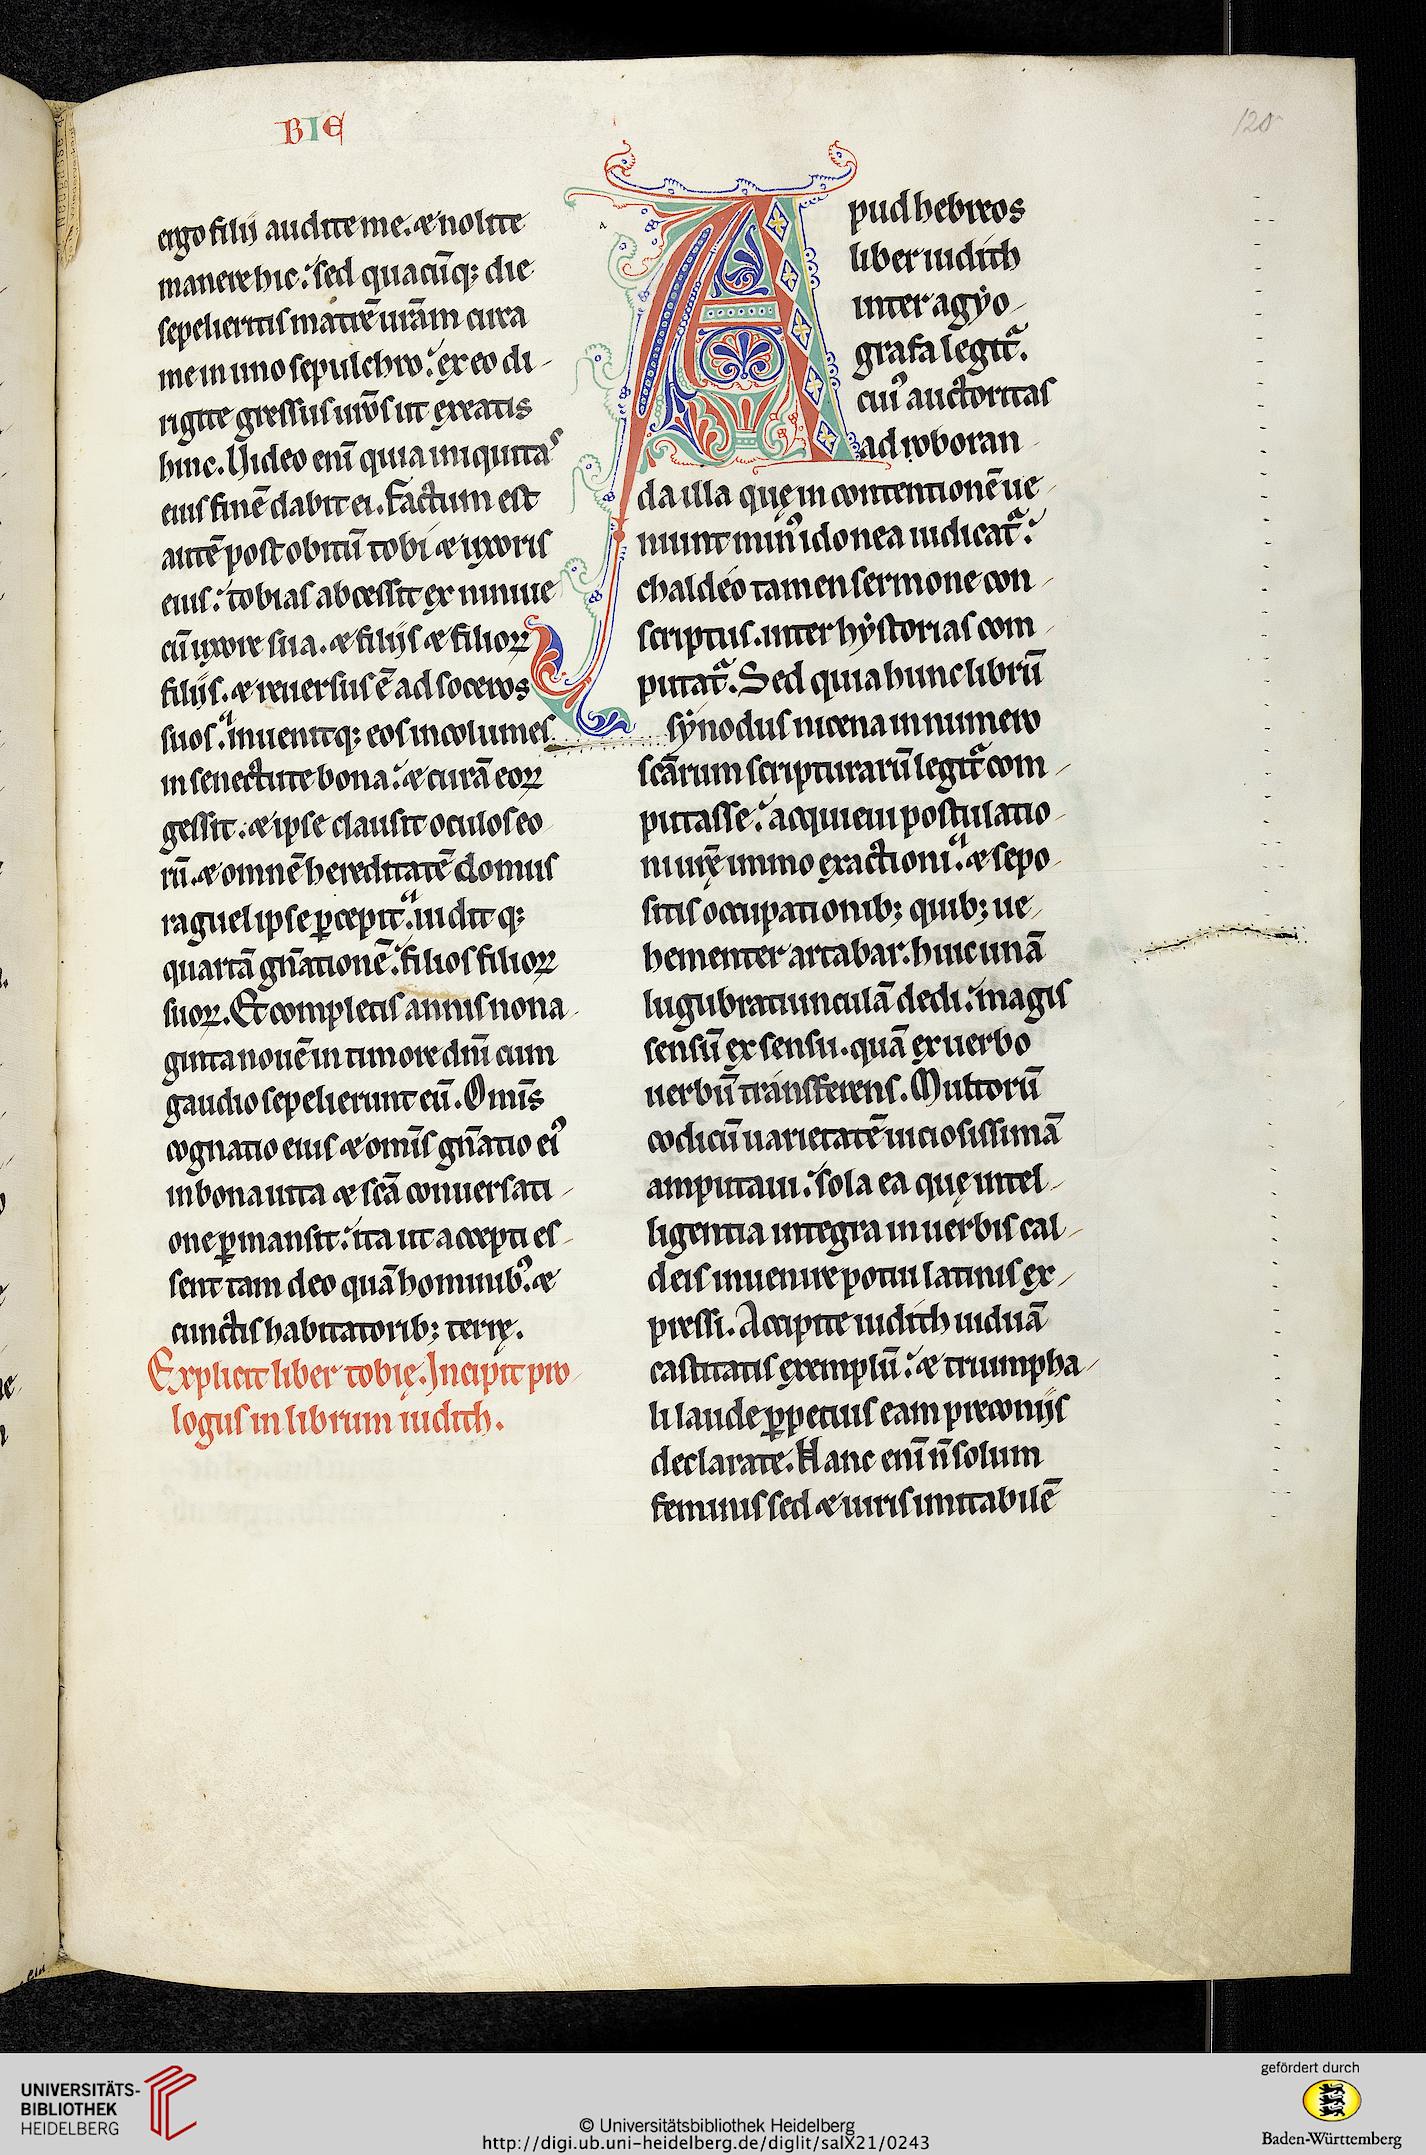 BIE
120
ergo filij audite me. & nolite
manere hic. sed quacūq; die
sepelieritis matrē urām circa
me in uno sepulchro. ex eo di-
rigite gressus urōs ut exeatis
hinc. Uideo enī quia iniquitas
eius finē dabit ei. Factum est
autē post obitū tobi & uxoris
eius. tobias abcessit ex niniue
cū uxore sua. & filijs & filioꝝ
filijs. & reuersus ē ad soceros
suos. inuenitq; eos incolumes
in senectute bona. & curā eoꝝ
gessit. & ipse clausit oculos eo
rū. & omnē hereditatē domus
raguel ipse ꝑcepit. uidit q;
quartā gn̄ationē. filios filioꝝ
suoꝝ. Et completis annis nona-
ginta nouē in timore dn̄i cum
gaudio sepelierunt eū. Omīs
cognatio eius & omīs gn̄atio ei᾽
in bona uita & scā conuersati-
one ꝑmansit. ita ut accepti es-
sent tam deo quā hominib᾽. &
cunctis habitatorib; terrę.
Explicit liber tobię. Incipit pro-
logus in librum iudith.
Apud hebreos
liber iudith
inter agyo-
grafa legit᾽.
cui᾽ auctoritas
ad roboran-
da illa quę in contentionē ue-
niunt min᾽ idonea iudicat᾽.
chaldeo tamen sermone con-
scriptus. inter hystorias com-
putat᾽. Sed quia hunc librū
synodus nicena in numero
scārum scripturarū legit᾽ com-
putasse. acquieui postulatio-
ni urę immo exactioni. & sepo-
sitis occupationib; quib; ue-
hementer artabar. huic unā
lugubratiunculā dedi. magis
sensū ex sensu. quā ex uerbo
uerbū transferens. Multorū
codicū uarietatē uiciosissimā
amputaui. sola ea quę intel-
ligentia integra in uerbis cal-
deis inuenire potui latinis ex-
pressi. Accipite iudith uiduā
castitatis exemplū. & triumpha-
li laude ꝑpetuis eam preconijs
declarate. Hanc enī n̄ solum
feminis sed & uiris imitabilē
UNIVERSITÄTS-
BIBLIOTHEK
HEIDELBERG
© Universitätsbibliothek Heidelberg
http://digi.ub.uni-heidelberg.de/diglit/salX21/0243
gefördert durch
Baden-Württemberg